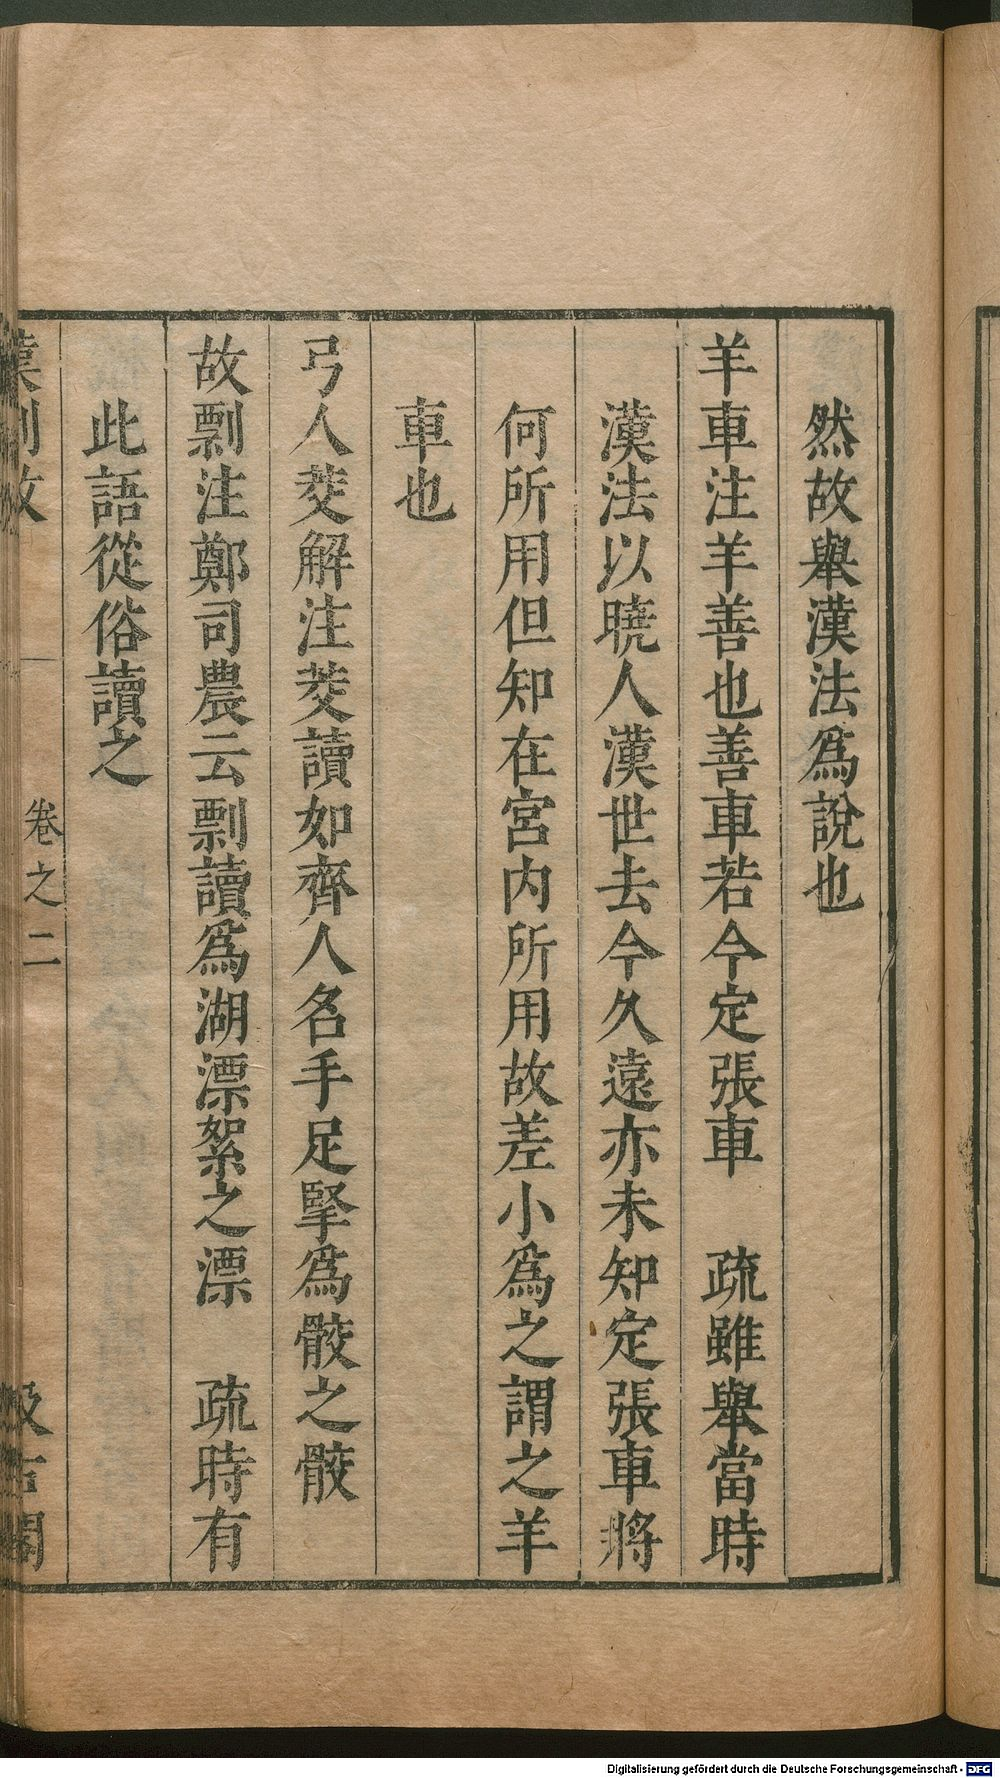 然故舉漢法爲說也
羊車注羊善也善車若今定張車　疏雖舉當時
漢法以曉人漢世去今久遠亦未知定張車將
何所用但知在宮内所用故差小爲之謂之羊
車也
弓人茭解注茭讀如齊人名手足掔爲骹之骹
故剽注鄭司農云剽讀爲湖漂絮之漂　疏時有
此語從俗讀之
制攷　卷之二　汲古閣
Digitalisierung gefördert durch die Deutsche Forschungsgemeinschaft - DFG